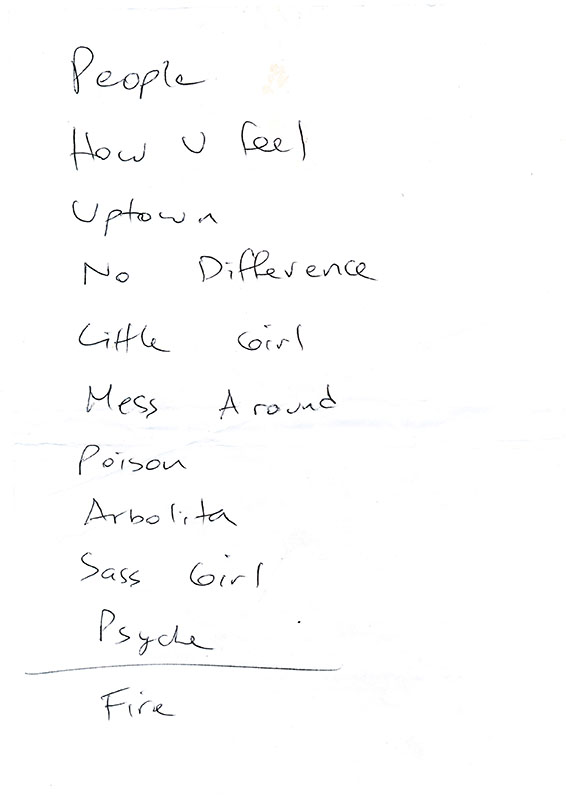 People
How U feel
Uptown
No Difference
Little Girl
Mess Around
Poison
Arbolita
Sass Girl
Psyche
Fire